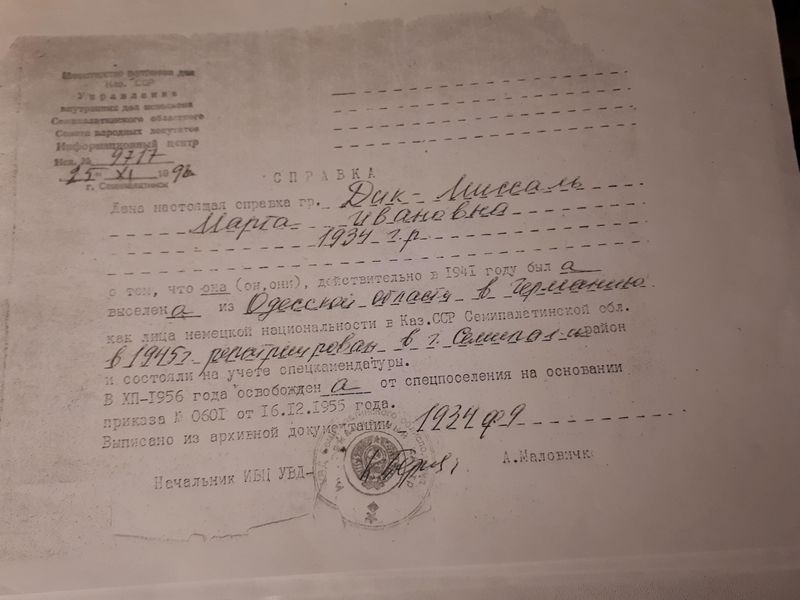 Министерство внутренних дел
Каз. ССР
Управление
внутренних дел исполкома
Семипалатинского областного
Совета народных депутатов
Информационный центр
Исх. № 9717
25 XI 199
г. Семипалатинск
СПРАВКА
Дана настоящая справка гр. Дик-Миссаль
Марта Ивановна
1934 г.р.
о том, что она (он,они), действительно в 1941 году был а
выселен а из Одесской области в Германию
как лица немецкой национальности в Каз.ССР Семипалатинской обл.
в 1945г. репатриирован в г. Семипал-к район
и состояли на учете спецкомендатуры.
В ХП-1956 года освобожден а от спецпоселения на основании
приказа № 0601 от 16.12.1955 года.
Выписано из архивной документации 1934 ф 9
Начальник ИВЦ УВД- А.Маловичк